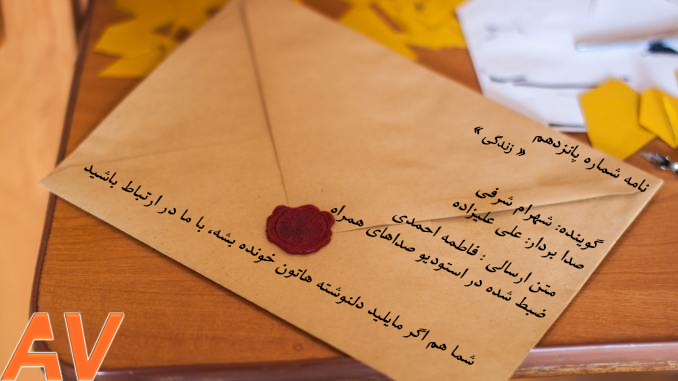 نامه شماره پانزدهم
« زندگی »
گوینده: شهرام شرفی
صدا بردار: علی علیزاده
متن ارسالی : فاطمه احمدی
ضبط شده در استودیو صداهای همراه
شما هم اگر مایلید دلنوشته هاتون خونده بشه، با ما در ارتباط باشید
AV